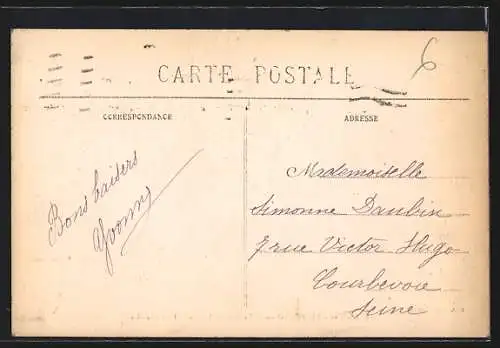 6
CARTE POSTALE
CORRESPONDANCE
ADRESSE
Bons baisers
Yvonne
Mademoiselle
Simonne Daubin
7 rue Victor Hugo
Courbevoie
Seine